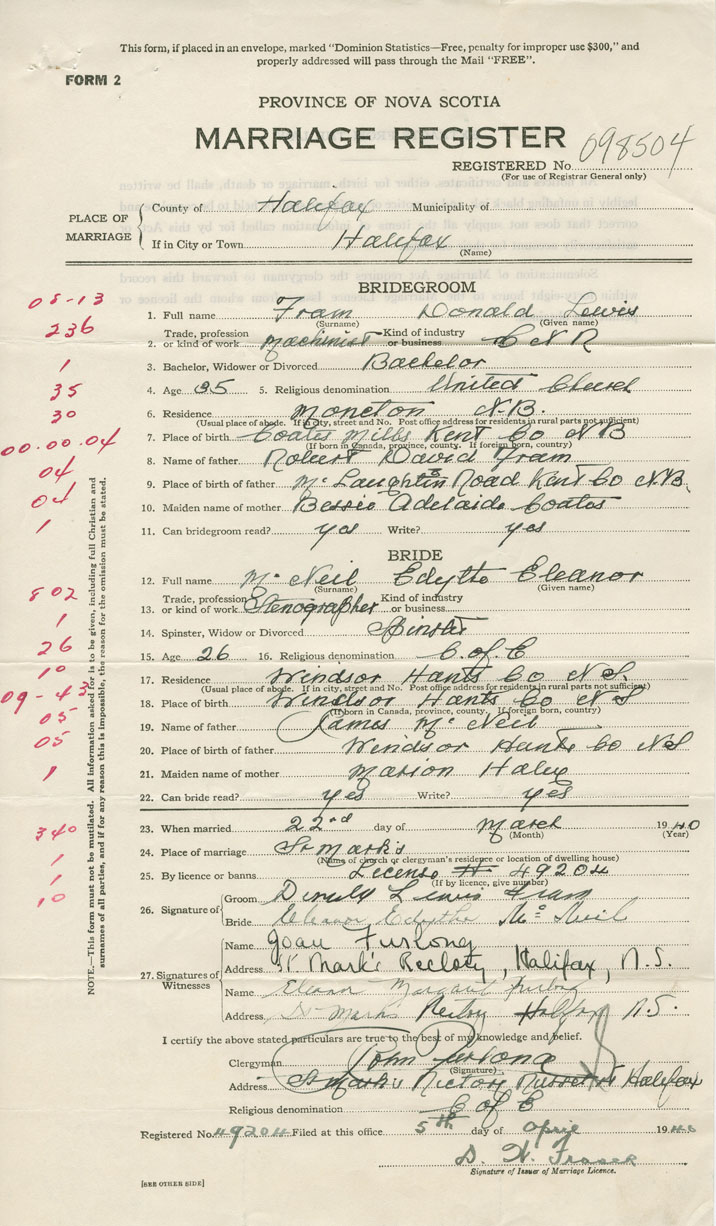 This form, if placed in an envelope, marked "Dominion Statistics—Free, penalty for improper use $300," and
properly addressed will pass through the Mail "FREE".
FORM 2
PROVINCE OF NOVA SCOTIA
MARRIAGE REGISTER
REGISTERED No. 098504
(For use of Registrar General only)
PLACE OF MARRIAGE
County of Halifax Municipality of
If in City or Town Halifax
(Name)
BRIDEGROOM
08-13
1. Full name Fram Donald Lewis
(Surname) (Given name)
236
2. Trade, profession or kind of work Machinist Kind of industry or business C N R
1
3. Bachelor, Widower or Divorced Bachelor
35
4. Age 35 5. Religious denomination United Church
30
6. Residence Moncton N.B.
(Usual place of abode. If in city, street and No. Post office address for residents in rural parts not sufficient)
00.00.04
7. Place of birth Coates Mills Kent Co N B
(If born in Canada, province, county. If foreign born, country)
8. Name of father Robert David Fram
04
9. Place of birth of father McLaughlin Road Kent Co N.B.
04
10. Maiden name of mother Bessie Adelaide Coates
1
11. Can bridegroom read? yes Write? yes
BRIDE
12. Full name McNeil Edythe Eleanor
(Surname) (Given name)
802
13. Trade, profession or kind of work Stenographer Kind of industry or business
1
14. Spinster, Widow or Divorced Spinster
26
15. Age 26 16. Religious denomination C. of E
10
17. Residence Windsor Hants Co N.S.
(Usual place of abode. If in city, street and No. Post office address for residents in rural parts not sufficient)
09-43
18. Place of birth Windsor Hants Co N S
(If born in Canada, province, county. If foreign born, country)
05
19. Name of father James McNeil
05
20. Place of birth of father Windsor Hants Co N S
1
21. Maiden name of mother Marion Haley
22. Can bride read? yes Write? yes
340
23. When married 22nd day of March 1940
(Month) (Year)
1
24. Place of marriage St Mark's
(Name of church or clergyman's residence or location of dwelling house)
1
25. By licence or banns License # 49204
(If by licence, give number)
10
26. Signature of
Groom Donald Lewis Fram
Bride Eleanor Edythe McNeil
27. Signatures of Witnesses
Name Joan Furlong
Address St. Mark's Rectory, Halifax, N.S.
Name Eleanor Margaret Furlong
Address St Mark's Rectory Halifax N.S.
I certify the above stated particulars are true to the best of my knowledge and belief.
Clergyman John Furlong
(Signature)
Address St Mark's Rectory Russell St Halifax
Religious denomination C of E
Registered No. 49204 Filed at this office 5th day of April 1940
D. H. Fraser
Signature of Issuer of Marriage Licence.
[SEE OTHER SIDE]
NOTE.—This form must not be mutilated. All information asked for is to be given, including full Christian and
surnames of all parties, and if for any reason this is impossible, the reason for the omission must be stated.